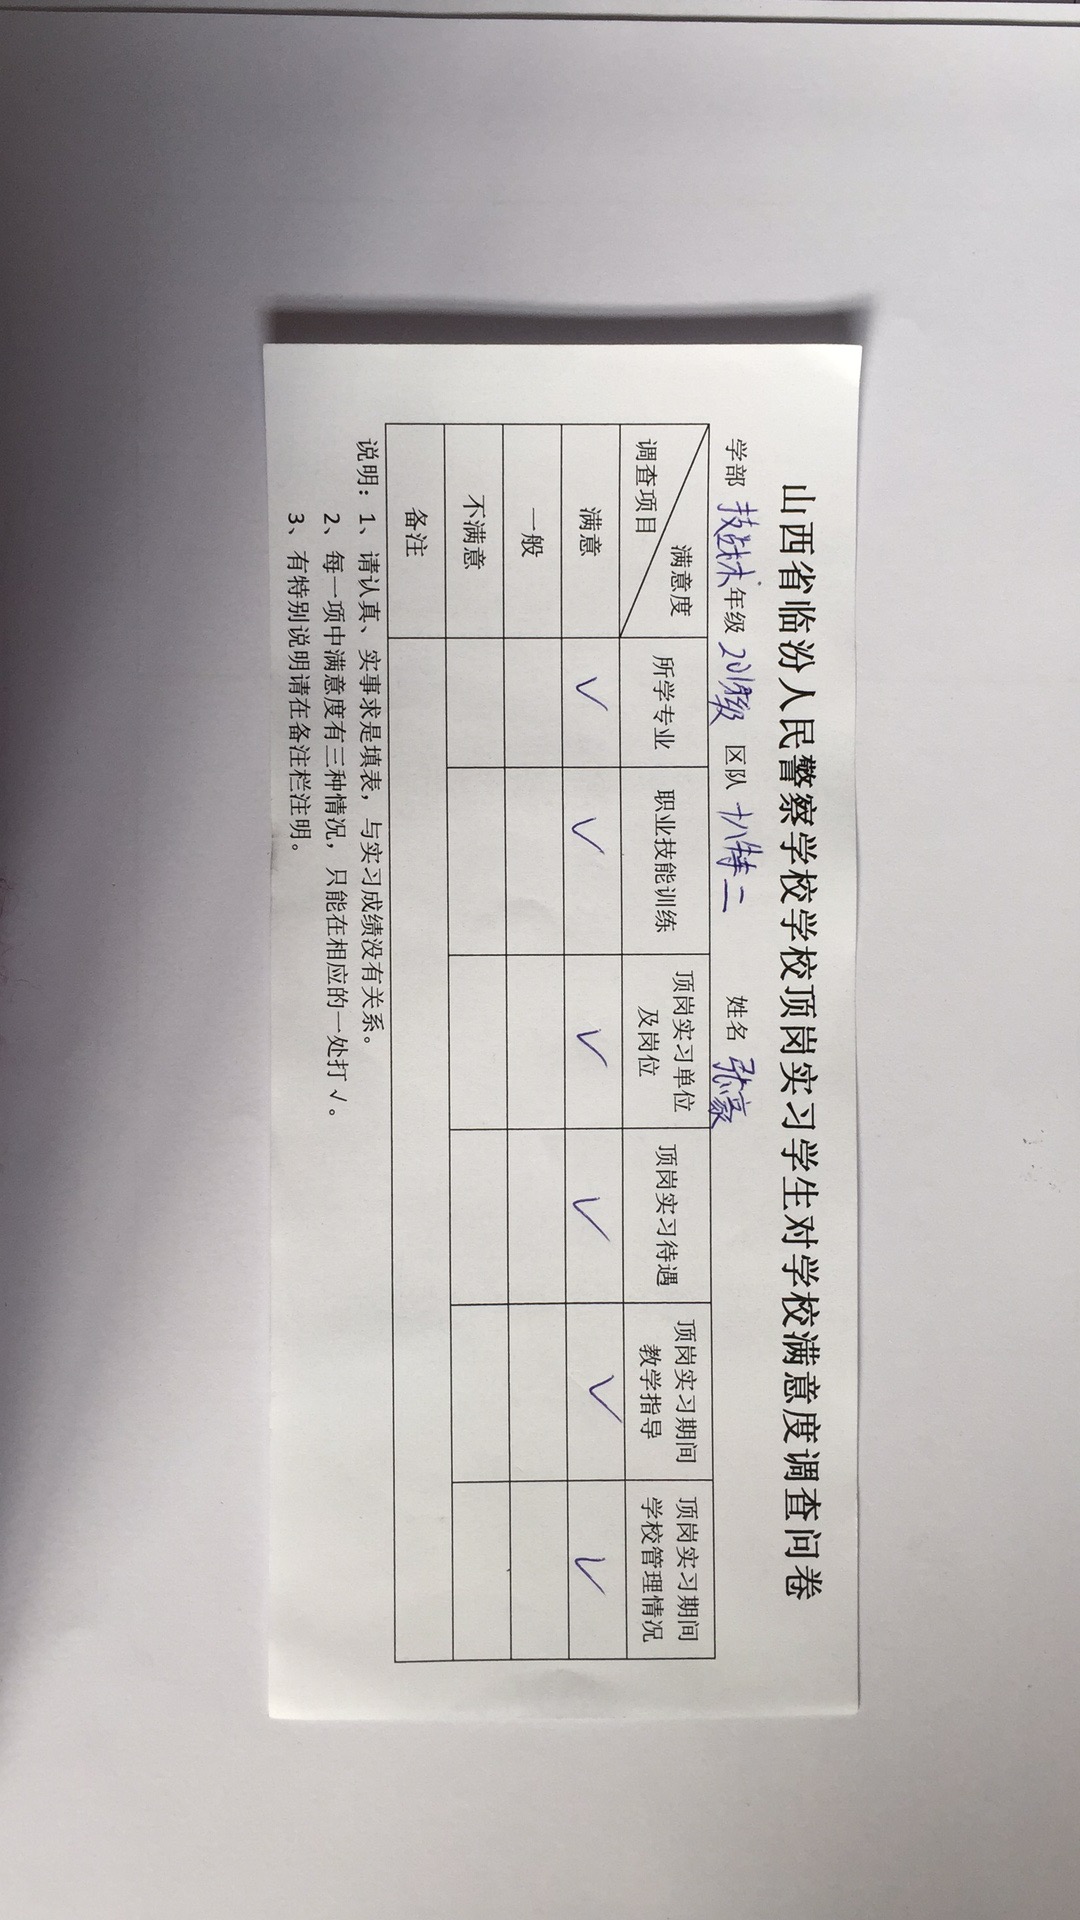 山西省临汾人民警察学校学校顶岗实习学生对学校满意度调查问卷
学部 技战术 年级 2018级 区队 十八特二 姓名 张豪
满意度
调查项目
所学专业
职业技能训练
顶岗实习单位
及岗位
顶岗实习待遇
顶岗实习期间
教学指导
顶岗实习期间
学校管理情况
满意 ✓ ✓ ✓ ✓ ✓ ✓
一般
不满意
备注
说明：1、请认真、实事求是填表，与实习成绩没有关系。
2、每一项中满意度有三种情况，只能在相应的一处打√。
3、有特别说明请在备注栏注明。